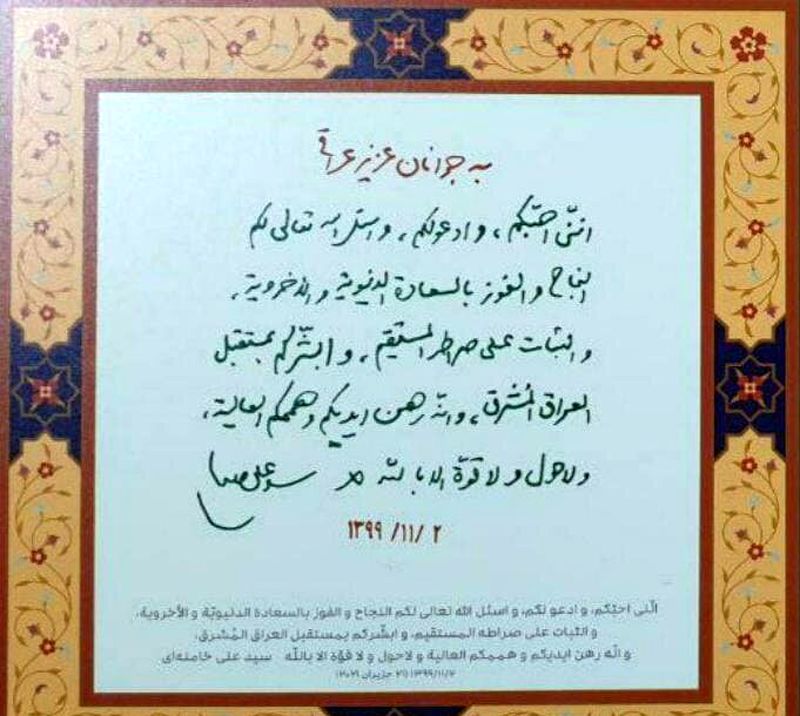 به جوانان عزیز عراق
اننّی احبّکم، و ادعولکم، و اسئل الله تعالی لکم
النجاح و الفوز بالسعادة الدنیویة و الاخرویة،
و الثبات علی صراطه المستقیم، و ابشّرکم بمستقبل
العراق المُشرق، و انّه رهن ایدیکم و هممکم العالیة،
ولاحول و لا قوّة الا بالله سیدعلی خامنه‌ای
۱۳۹۹/۱۱/۲
انّنی احبّکم، و ادعو لکم، و اسئل الله تعالی لکم النجاح و الفوز بالسعادة الدنیویّة و الأخرویة،
و الثبات علی صراطه المستقیم، و ابشّرکم بمستقبل العراق المُشرق،
و انّه رهن ایدیکم و هممکم العالیة و لاحول و لا قوّة الا بالله سید علی خامنه‌ای
۱۳۹۹/۱۱/۲ (۲۱ حزیران ۲۰۲۱)